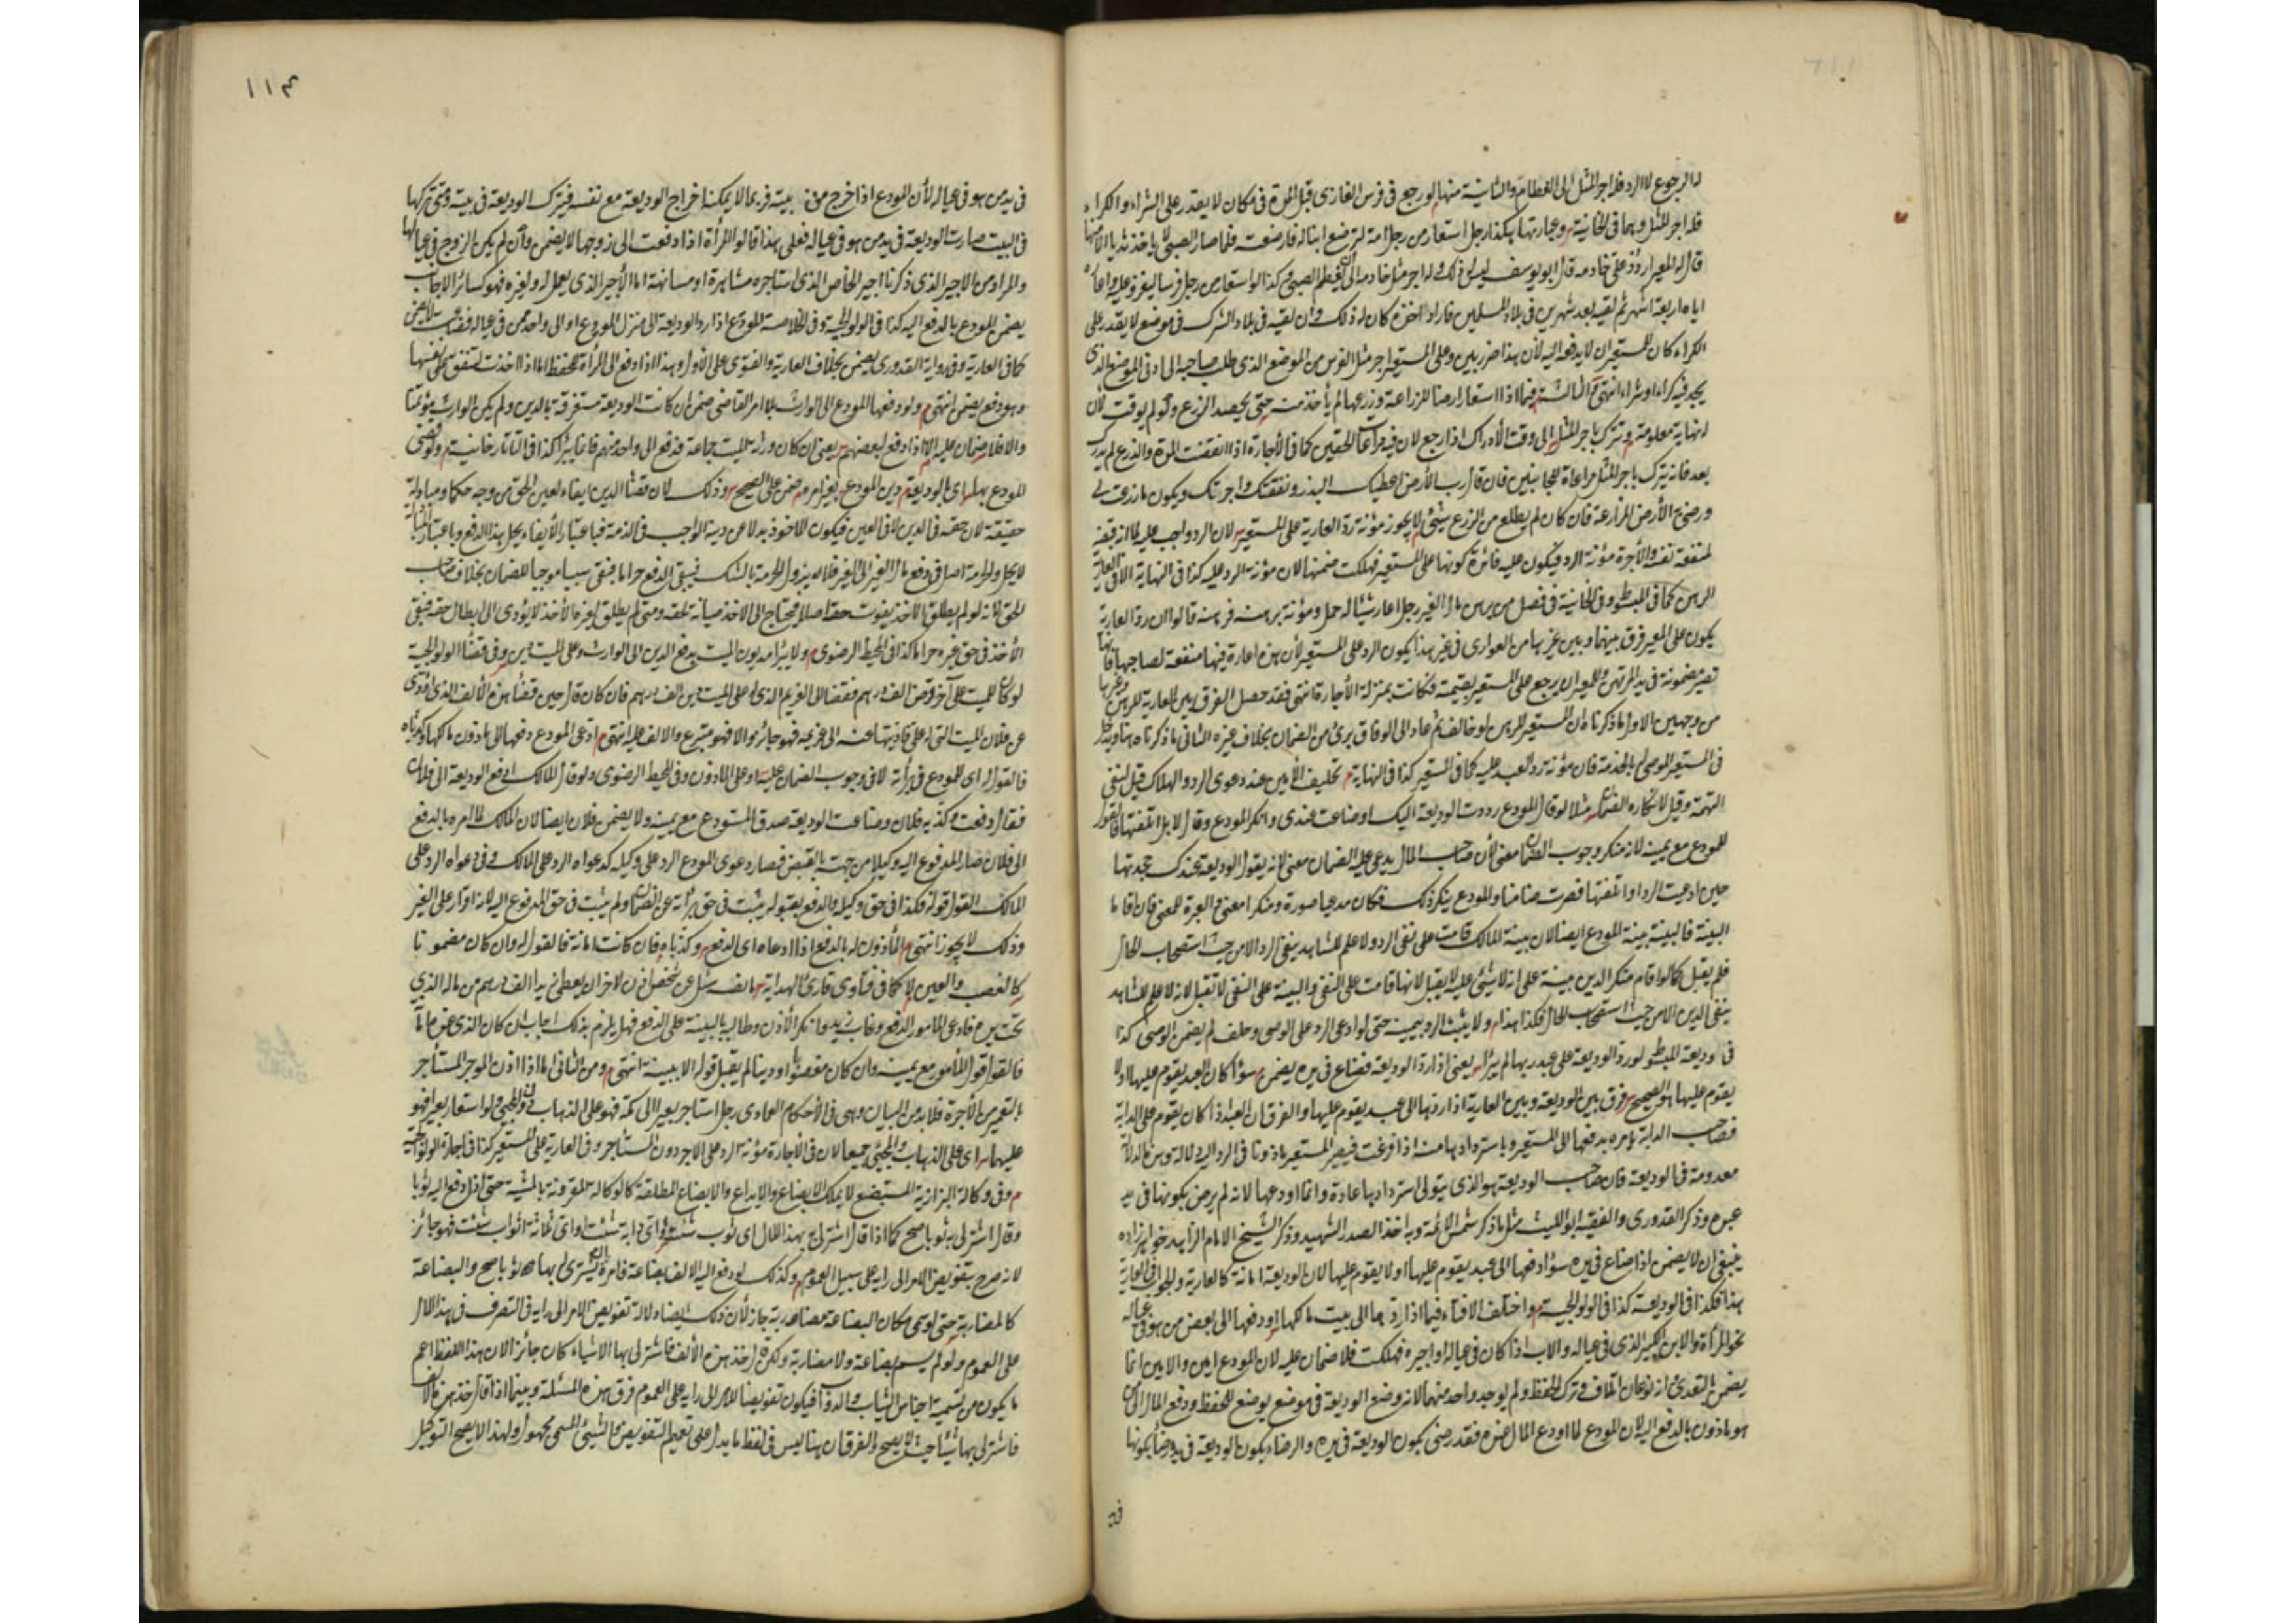 له الرجوع لا الرد فله اجر المثل الى الفطام والثانية منها لو رجع فى فرس الغازى قبل المدة فى مكان لا يقدر على الشراء والكراء
فله اجر المثل وهما فى الخانية وعبارتها هكذا رجل استعار من رجل امة لترضع ابنا له فارضعت فلما صار الصبى لا ياخذ ثديا الا منها
قال له المعير اردد على خادمه قال ابو يوسف ليس له ذلك وله اجر مثل خادمه الى ان يفطم الصبى وكذا لو استعار من رجل فرسا ليغزو عليه فاعاره
اياه اربعة اشهر ثم لقيه بعد شهرين فى بلاد المسلمين فاراد اخذه كان له ذلك وان لقيه فى بلاد الشرك فى موضع لا يقدر على
الكراء كان للمستعير ان لا يدفعه اليه لأن هذا ضرر بين وعلى المستعير اجر مثل الفرس من الموضع الذى طلب صاحبه الى ادنى الموضع الذى
يجد فيه كراء او شراء انتهى م الثالثة فيما اذا استعار ارضا للزراعة وزرعها لم يأخذ منه حتى يحصد الزرع ولو لم يوقت لأن
له نهاية معلومة م وتترك باجر المثل الى وقت الأدراك اذا رجع لان فيه مراعاة الحقين كما فى الأجارة اذا انقضت المدة والزرع لم يدرك
بعد فانه يترك باجر المثل مراعاة للجانبين فان قال رب الأرض اعطيك البذر ونفقتك واجرتك ويكون ما زرعت لى
ورضى الأرض المزارعة فان كان لم يطلع من الزرع شيئ لا يجوز مؤنة رد العارية على المستعير لان الرد واجب عليه لما انه قبضه
لمنفعة نفسه والأجرة مؤنة الرد فيكون عليه فائدة كونها على المستعير فهلكت ضمنها لان مؤنة الرد عليه كذا فى النهاية الا فى العارية
الرهن كما فى المبسوط وفى الخانية فى فصل من يرهن مال الغير رجل اعار شيئا له حمل ومؤنة يرهنه فرهنه قالوا ان رد العارية
يكون على المعير فرق بينها وبين غيرها من العوارى فى غير هذا يكون الرد على المستعير لأن هذه اعارة فيها منفعة لصاحبها فانها
تصير مضمونة فى يد المرتهن وللمعير ان يرجع على المستعير بقيمته فكانت بمنزلة الأجارة انتهى فقد حصل الفرق بين العارية للرهن وغيرها
من وجهين الاول ما ذكرناه ان المستعير للرهن لو خالف ثم عاد الى الوفاق برئ من الضمان بخلاف غيره الثانى ما ذكرناه هنا
فى المستعير الموصى له بالخدمة فان مؤنة رد العبد عليه كما فى المستعير كذا فى النهاية م تحليف الأمين عند دعوى الرد والهلاك قيل لنفى
التهمة وقيل لانكاره الضمان مثلا لو قال المودع رددت الوديعة اليك او ضاعت عندى وانكر المودع وقال لا بل اتلفتها فالقول
للمودع مع يمينه لانه منكر وجوب الضمان معنى لأن صاحب المال يدعى عليه الضمان معنى لانه يقول الوديعة عندك جحدتها
حين ادعيت الرد او اتلفتها فصرت ضامنا والمودع ينكر ذلك فكان مدعيا صورة ومنكرا معنى والعبرة للمعنى فان اقاما
البينة فالبينة بينة المودع ايضا لان بينة المالك قامت على نفى الرد ولا علم للشاهد بنفى الرد الا من حيث استصحاب الحال
فلم يقبل كما لو اقام منكر الدين بينة على انه لا شيئ عليه لا يقبل لانها قامت على النفى والبينة على النفى لا تقبل لانه لا علم للشاهد
بنفى الدين الا من حيث استصحاب الحال فكذا هذا م ولا يثبت الرد بيمينه حتى لو ادعى الرد على الوصى وحلف لم يضمن الوصى كذا
فى وديعة المبسوط لو رد الوديعة على عبد ربها لم يبرأ يعنى اذا رد الوديعة فضاع فى يده يضمن سواء كان العبد يقوم عليها او لا
يقوم عليها هو الصحيح فرق بين الوديعة وبين العارية اذا ردها الى عبد يقوم عليها والفرق ان العبد اذا كان يقوم على الدابة
فصاحب الدابة يامره بدفعها الى المستعير وباستردادها منه اذا فرغت فيصير المستعير ماذونا فى الرد اليه دلالة وهذه الدلالة
معدومة فى الوديعة فان صاحب الوديعة هو الذى يتولى استردادها عادة وانما اودعها لانه لم يرض بكونها فى يد
عبده وذكر القدورى والفقيه ابو الليث مثل ما ذكر شمس الائمة وبه اخذ الصدر الشهيد وذكر الشيخ الامام الزاهد خواهر زاده
ينبغى ان لا يضمن اذا ضاع فى يده سواء دفعها الى عبد يقوم عليها او لا يقوم عليها لان الوديعة امانة كالعارية والجواب فى العارية
هذا فكذا فى الوديعة كذا فى الولوالجية م واختلف الافتاء فيما اذا ردها الى بيت مالكها او دفعها الى بعض من هو فى عياله
نحو المرأة والابن الكبير الذى فى عياله والاب اذا كان فى عياله او اجيره فهلكت فلا ضمان عليه لان المودع امين والامين انما
يضمن بالتعدى وانه نوعان اتلاف وترك الحفظ ولم يوجد واحد منهما لانه وضع الوديعة فى موضع يوضع للحفظ ودفع المال الى من
هو ماذون بالدفع اليه لان المودع لما اودع المال عنده فقد رضى بكون الوديعة فى يده والرضا بكون الوديعة فى يده رضأ بكونها
فى يد
١١٤
فى يد من هو فى عياله لأن المودع اذا خرج من بيته فربما لا يمكنه اخراج الوديعة مع نفسه فيترك الوديعة فى بيته ومتى تركها
فى البيت صارت الوديعة فى يد من هو فى عياله فعلى هذا قالوا المرأة اذا دفعت الى زوجها لا يضمن وان لم يكن الزوج فى عيالها
والمراد من الاجير الذى ذكرنا اجير الخاص الذى استاجره مشاهرة او مسانهة اما الأجير الذى يعمل له ولغيره فهو كسائر الاجانب
يضمن المودع بالدفع اليه كذا فى الولوالجية وفى الخلاصة المودع اذا رد الوديعة الى منزل المودع او الى واحد ممن فى عياله فضاعت لا يضمن
كما فى العارية وفى رواية القدورى يضمن بخلاف العارية والفتوى على الأول وهذا اذا دفع الى المرأة للحفظ اما اذا اخذت لتنفق على نفسها
وهو دفع يضمن انتهى م ولو دفعها المودع الى الوارث بلا امر القاضى ضمن ان كانت الوديعة مستغرقة بالدين ولم يكن الوارث مؤتمنا
والا فلا ضمان عليه الا اذا دفع لبعضهم يعنى ان كان ورثة الميت جماعة فدفع الى واحد منهم فانما يبرأ كذا فى التاتارخانية م ولو قضى
المودع بها اى بالوديعة م دين المودع بغير امره ضمن على الصحيح وذلك لان قضا الدين ايفاء لعين الحق من وجه حكما ومبادلة
حقيقة لان حقه فى الدين لا فى العين فيكون المأخوذ بدلا عن دينه الواجب فى الذمة فباعتبار الأيفاء يحل هذا الدفع وباعتبار المبادلة
لا يحل والحرمة اصل فى دفع مال الغير الى الغير فلا يزول الحرمة بالشك فيبقى الدفع حراما فبقى سببا موجبا للضمان بخلاف صاحب
الحق لانه لو لم يطلق بالاخذ يفوت حقه اصلا فيحتاج الى الاخذ صيانة لحقه ومتى لم يطلق لغيره الأخذ لا يؤدى الى ابطال حقه فبقى
الأخذ فى حق غيره حراما كذا فى المحيط الرضوى م ولا يبرأ مديون الميت بدفع الدين الى الوارث وعلى الميت دين وفى قضا الولوالجية
لو كان للميت على آخر قرض الف درهم فقضاها الى الغريم الذى له على الميت دين الف درهم فان كان قال حين قضا هذه الألف الذى اقضى
عن فلان الميت التى له على قاديتها عنه الى غريمه فهو جائز والا فهو متبرع والالف عليه انتهى م ادعى المودع دفعها الى ماذون مالكها وكذباه
فالقول له اى للمودع فى برأته لا فى وجوب الضمان عليه او على الماذون وفى المحيط الرضوى ولو قال المالك ادفع الوديعة الى فلان
فقال دفعت وكذبه فلان وضاعت الوديعة صدق المستودع مع يمينه ولا يضمن فلان ايضا لان المالك لما امره بالدفع
الى فلان صار المدفوع اليه وكيلا من جهته بالقبض فصار دعوى المودع الرد على وكيله كدعواه الرد على المالك وفى دعواه الرد على
المالك القول قوله فكذا فى حق وكيله والدفع بقبوله يثبت فى حق براءته عن الضمان ولم يثبت فى حق المدفوع اليه لانه اقرار على الغير
وذلك لا يجوز انتهى م المأذون له بالدفع اذا ادعاه اى الدفع وكذباه فان كانت امانة فالقول له وان كان مضمونا
كالغصب والدين لا كما فى فتاوى قارئ الهداية
فالقول قول المأمور مع يمينه وان كان مغصوبا او دينا لم يقبل قوله الا ببينة انتهى م ومن الثانى ما اذا اذن المؤجر المستأجر
بالتعمير من الأجرة فلا بد من البيان وهى فى الأحكام العمادى رجل استاجر بعيرا الى مكة فهو على الذهاب دون المجئ ولو استعار بعيرا فهو
عليهما اى على الذهاب والمجئ جميعا لان فى الأجارة مؤنة الرد على الاجر دون المستأجر وفى العارية على المستعير كذا فى اجارة الولوالجية
م وفى وكالة البزازية المستبضع لا يملك الابضاع والايداع والابضاع المطلقة كالوكالة المقرونة بالمشية حتى اذا دفع اليه ثوبا
وقال اشتر لى به ثوبا صح كما اذا قال اشتر لى بهذا المال اى ثوب شئت واى دابة شئت او اى ثلاثة اثواب شئت فهو جائز
لانه صرح بتفويض الامر الى رايه على سبيل العموم م وكذلك لو دفع اليه الالف بضاعة فامره ان يشترى له بها ثوبا صح والبضاعة
كالمضاربة حتى لو سمى مكان البضاعة مضاربة جاز لأن ذلك ايضا دلالة تفويض الامر الى رايه فى التصرف فى هذا المال
على العموم ولو لم يسم بضاعة ولا مضاربة ولكن قال خذ هذه الألف فاشتر لى بها الاشياء كان جائز الان هذا اللفظ اعم
ما يكون من تسمية اجناس الثياب والدواب فيكون تفويضا للامر الى رايه على العموم فرق هذه المسئلة وبينما اذا قال خذ هذه الالف
فاشتر لى بها شيئا حيث لا يصح الفرق ان هنا ليس فى لفظ ما يدل على تعميم التفويض والشيئ المسمى مجهول ولهذا لا يصح التوكيل